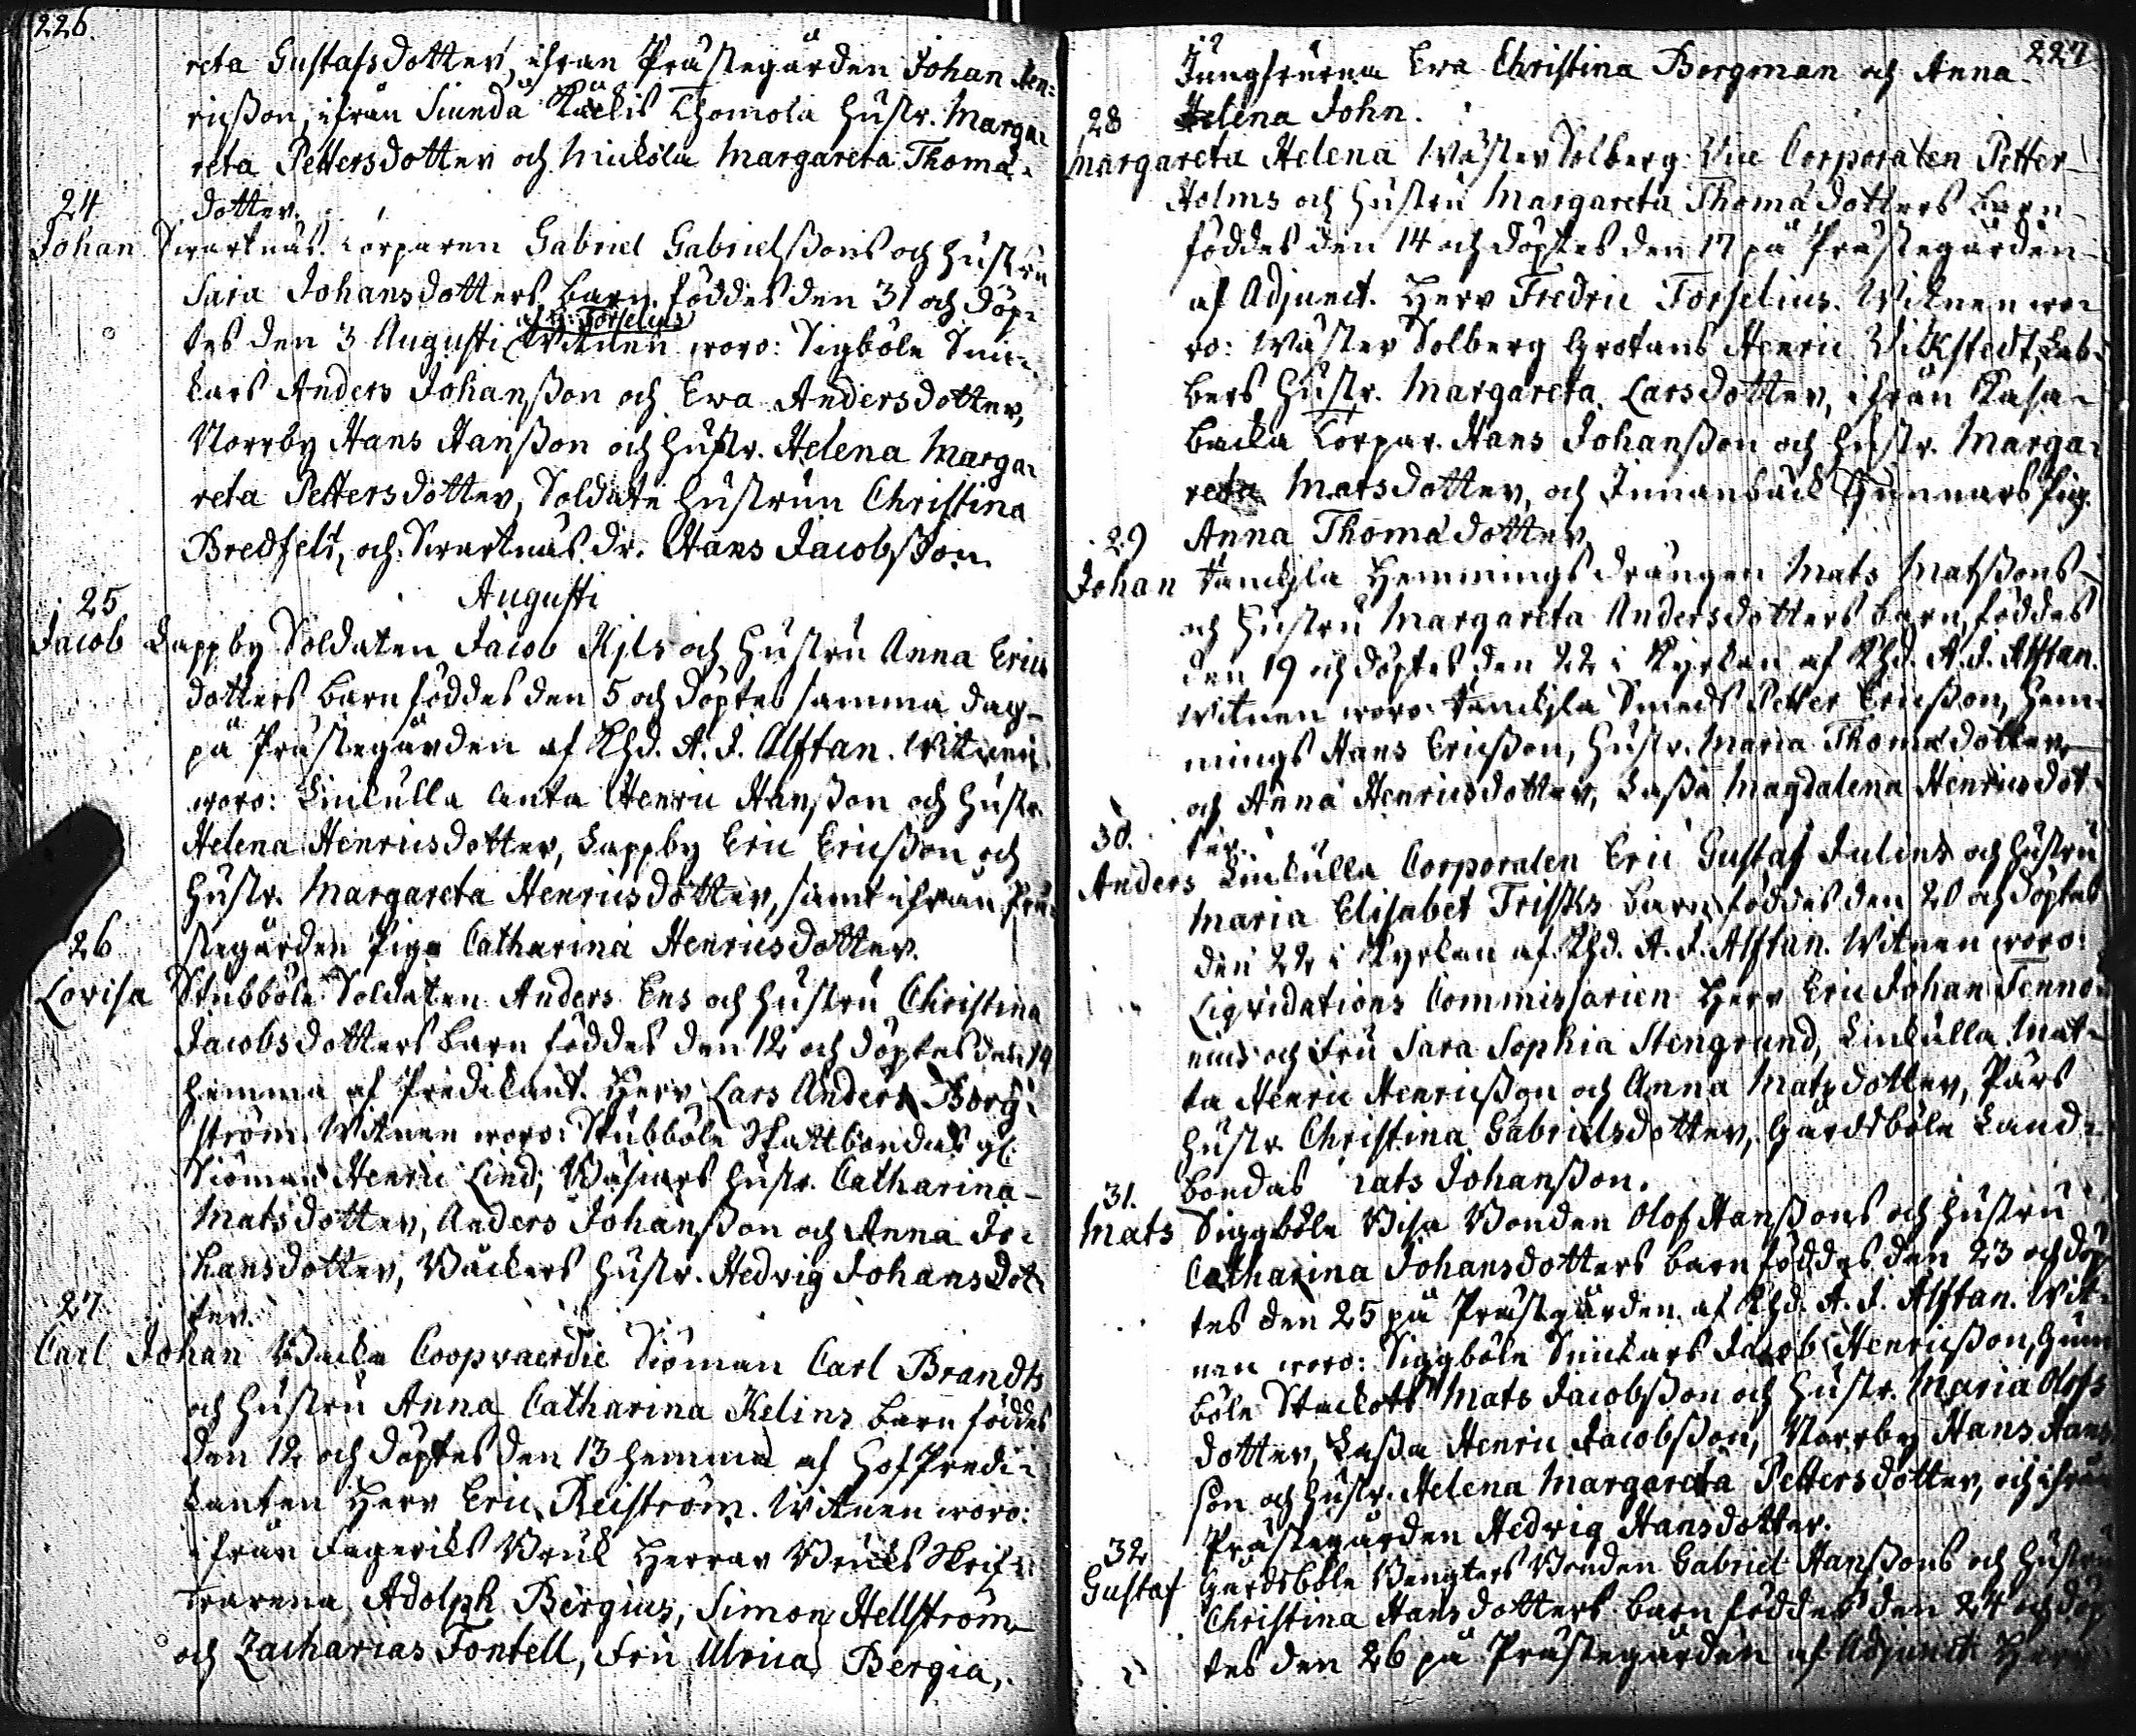 226.
reta Gustafsdotter, ifrån Prästegården Johan Hen-
ricßon, ifrån Siundå Kackis Thomola hustr. Marga-
reta Pettersdotter och Mickola Margareta Thomæ-
dotter.
24
Johan Swartnäs torparen Gabriel Gabrielßons och hustru
Sara Johansdotters barn föddes den 31 och döp-
af H. Forselius
tes den 3 Augusti Witnen woro: Sigböle Smi-
kars Anders Johanßon och Ewa Andersdotter,
Norrby Hans Hanßon och hustr. Helena Marga-
reta Pettersdotter, Soldate hustrun Christina
Bredfelt, och Swartnäs dr. Hans Jacobßon
Augusti
25
Jacob Lappby Soldaten Jacob Kjls och hustru Anna Erics
dotters barn föddes den 5 och döptes samma dag
på Prästegården af Khd. A. J. Alftan. Witnen
woro: Linkulla Anta Henric Hanßon och hustr.
Helena Henricsdotter, Lappby Eric Ericßon och
hustr. Margareta Henricsdotter, samt ifrån Prä-
stegården Piga Catharina Henricsdotter.
26
Lovisa Stubböle Soldaten Anders Ens och hustru Christina
Jacobsdotters barn föddes den 12 och döptes den 14
hemma af Predikant. Herr Lars Anders Borg-
ström. Witnen woro: Stubböle Skattbondas gl.
Siöman Henric Lind, hustr. Catharina
Matsdotter, Anders Johanßon och Anna Jo-
hansdotter, Wäckers hustr. Hedvig Johansdot-
ter.
27
Carl Johan Backa Coopvaerdie Siöman Carl Brandts
och hustru Anna Catharina Kelins barn föddes
den 12 och döptes den 13 hemma af Hof Predi-
kanten Herr Eric Reiström. Witnen woro:
ifrån Fagerviks Bruk Herrar Bruks Skrif-
warena Adolph Bergius, Simon Hellström
och Zacharias Fontell, Fru Ulrica Bergia,
227
Jungfrurna Eva Christina Bergman och Anna
Helena John.
28
Margareta Helena Wäster Solberg Vice Corporalen Petter
Holms och hustru Margareta Thomædotters barn
föddes den 14 och döptes den 17 på Prästegården
af Adjunct. Herr Fredric Forselius. Witnen wo-
ro: Wäster Solberg Grotans Henric Vikstedt, Lab-
bers hustr. Margareta Larsdotter, ifrån Kasa-
backa Torpar. Hans Johanßon och hustr. Marga-
reta Matsdotter, och Innanbäck Gunnars pig.
Anna Thomædotter
29
Johan Hemmings drängen Mats Matßons
och hustru Margareta Andersdotters barn, föddes
den 19 och döptes den 22 i Kyrkan af Khd. A. J. Alftan.
Witnen woro: Smeds Petter Ericßon, Hem-
mings Hans Ericßon, hustr. Maria Thomædotter
och Anna Henricsdotter, Laßa Magdalena Henricsdot-
ter.
30.
Anders Linkulla Corporalen Eric Gustaf Julins och hustru
Maria Elisabet Frisks barn föddes den 20 och döptes
den 22 i Kyrkan af Khd. A. J. Alftan. Witnen woro:
Liqvidations Commissarien Herr Eric Johan Tenne-
nius och Fru Sara Sophia Stengrund, Linkulla Mat-
ta Henric Henricßon och Anna Matsdotter, Pärs
hustr. Christina Gabrielsdotter, Gårdsböle Land-
bondas Mats Johanßon.
31.
Mats Siggböle Bisa Bonden Olof Hanßons och hustru
Catharina Johansdotters barn föddes den 23 och döp
tes den 25 på Prästgården af Khd. A. J. Alftan. Wit-
nen woro: Siggböle Smikars Jacob Henricßon, Gun
böle Stackots Mats Jacobßon och hustr. Maria Olofs
dotter, Laßa Henric Jacobßon, Norrby Hans Hans
son och hustr. Helena Margareta Pettersdotter, och ifrån
Prästegården Hedvig Hansdotter.
32
Gustaf Gårdsböle Bengters Bonden Gabriel Hanßons och hustru
Christina Hansdotters barn föddes den 24 och döp
tes den 26 på Prästegården af Adjunct. Herr